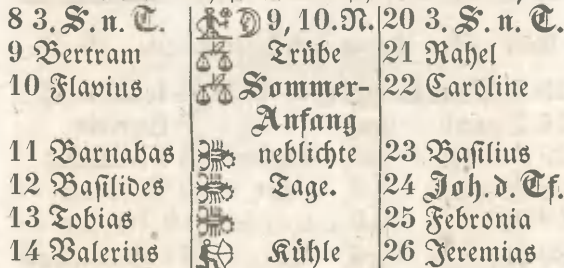 8 3. S. n. T. 9, 10. N. 20 3. S. n. T.
9 Bertram Trübe 21 Rahel
10 Flavius Sommer- 22 Caroline
Anfang
11 Barnabas neblichte 23 Basilius
12 Basilides Tage. 24 Joh. d. Tf.
13 Tobias 25 Febronia
14 Valerius Kühle 26 Jeremias